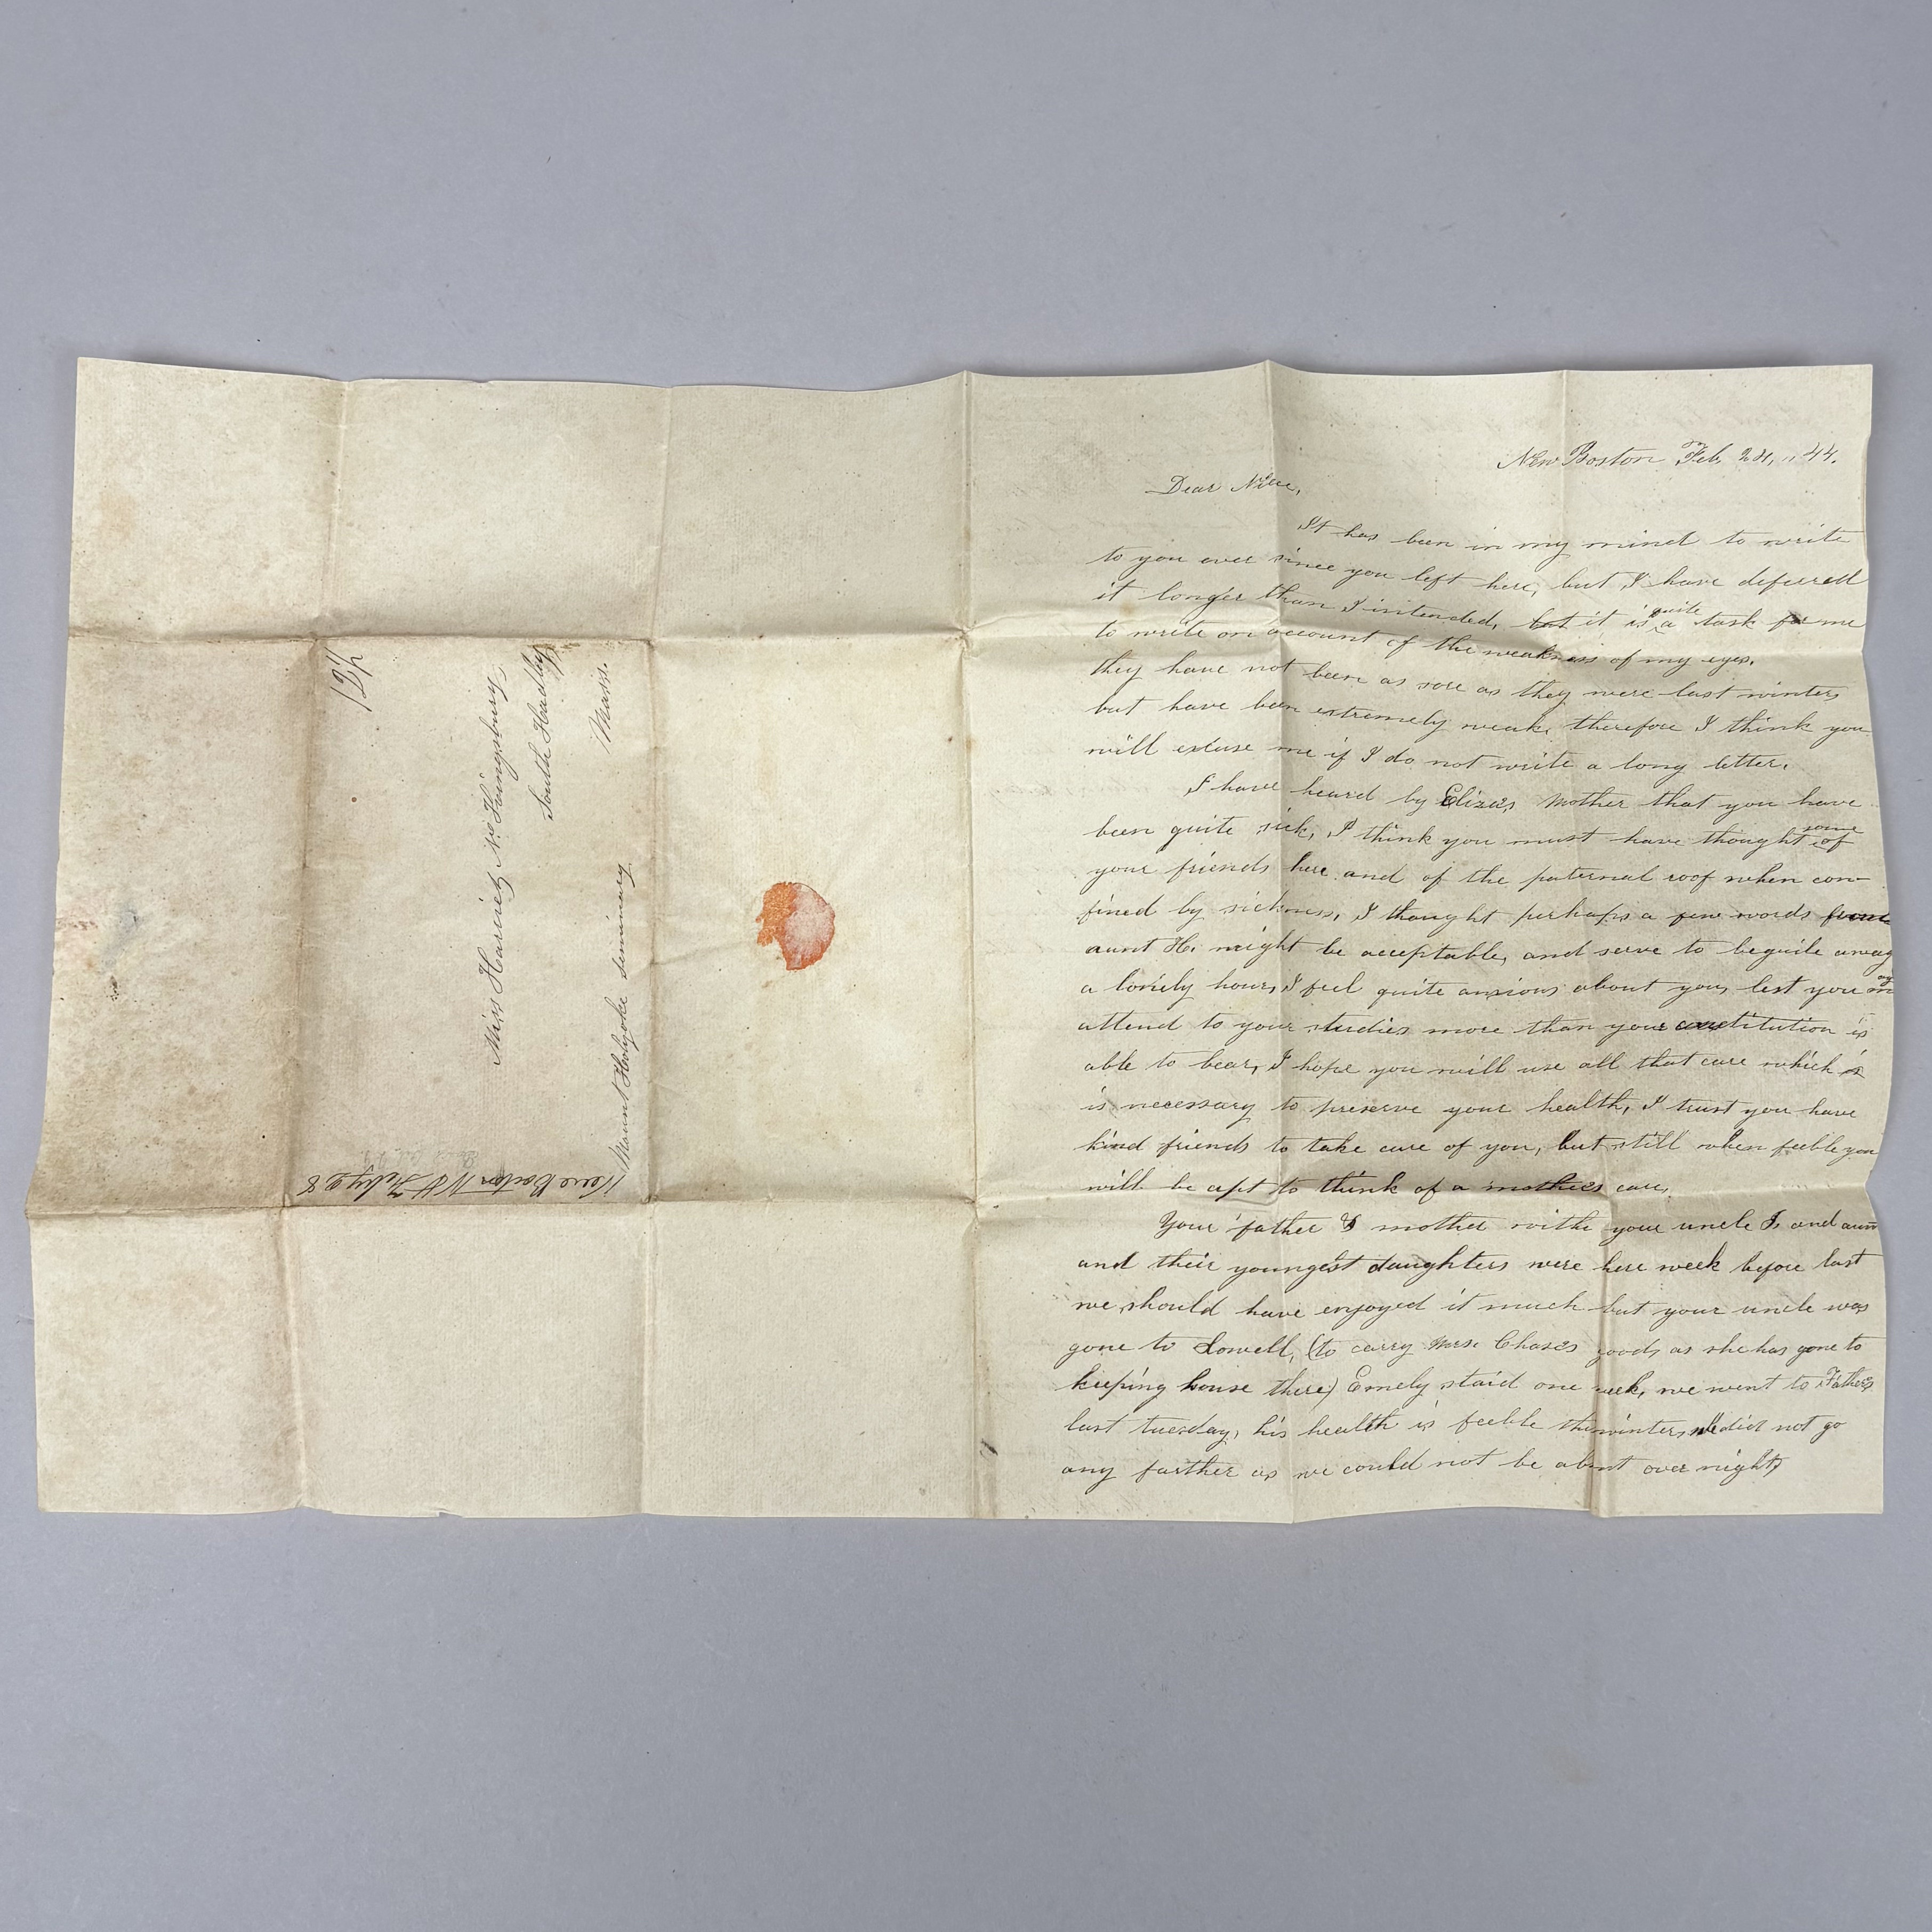 New Boston Feb, 24, 44.
Dear Niece,
It has been in my mind to write
to you ever since you left here, but I have deferred
it longer than I intended, but it is quite a task for me
to write on account of the weakness of my eyes.
they have not been as sore as they were last winter,
but have been extremely weak, therefore I think you
will excuse me if I do not write a long letter.
I have heard by Eliza's Mother that you have
been quite sick, I think you must have thought some of
your friends here and of the paternal roof when con-
fined by sickness, I thought perhaps a few words from
aunt H. might be acceptable, and serve to beguile away
a lonely hour, I feel quite anxious about you, lest you may
attend to your studies more than your constitution is
able to bear, I hope you will use all that care which is
is necessary to preserve your health, I trust you have
kind friends to take care of you, but still when feeble you
will be apt to think of a mother's care,
Your father & mother with your uncle I. and aunt
and their youngest daughters were here week before last
we should have enjoyed it much but your uncle was
gone to Lowell, (to carry Mrs. Chase's goods as she has gone to
keeping house there) Emely staid one week, we went to Father's
last tuesday, his health is feeble this winter, we did not go
any farther as we could not be absent over night,
12½
Miss Harriet N. Kingsbury
South Hadley
Mass.
Mount Holyoke seminary
New Boston N H Feby 28